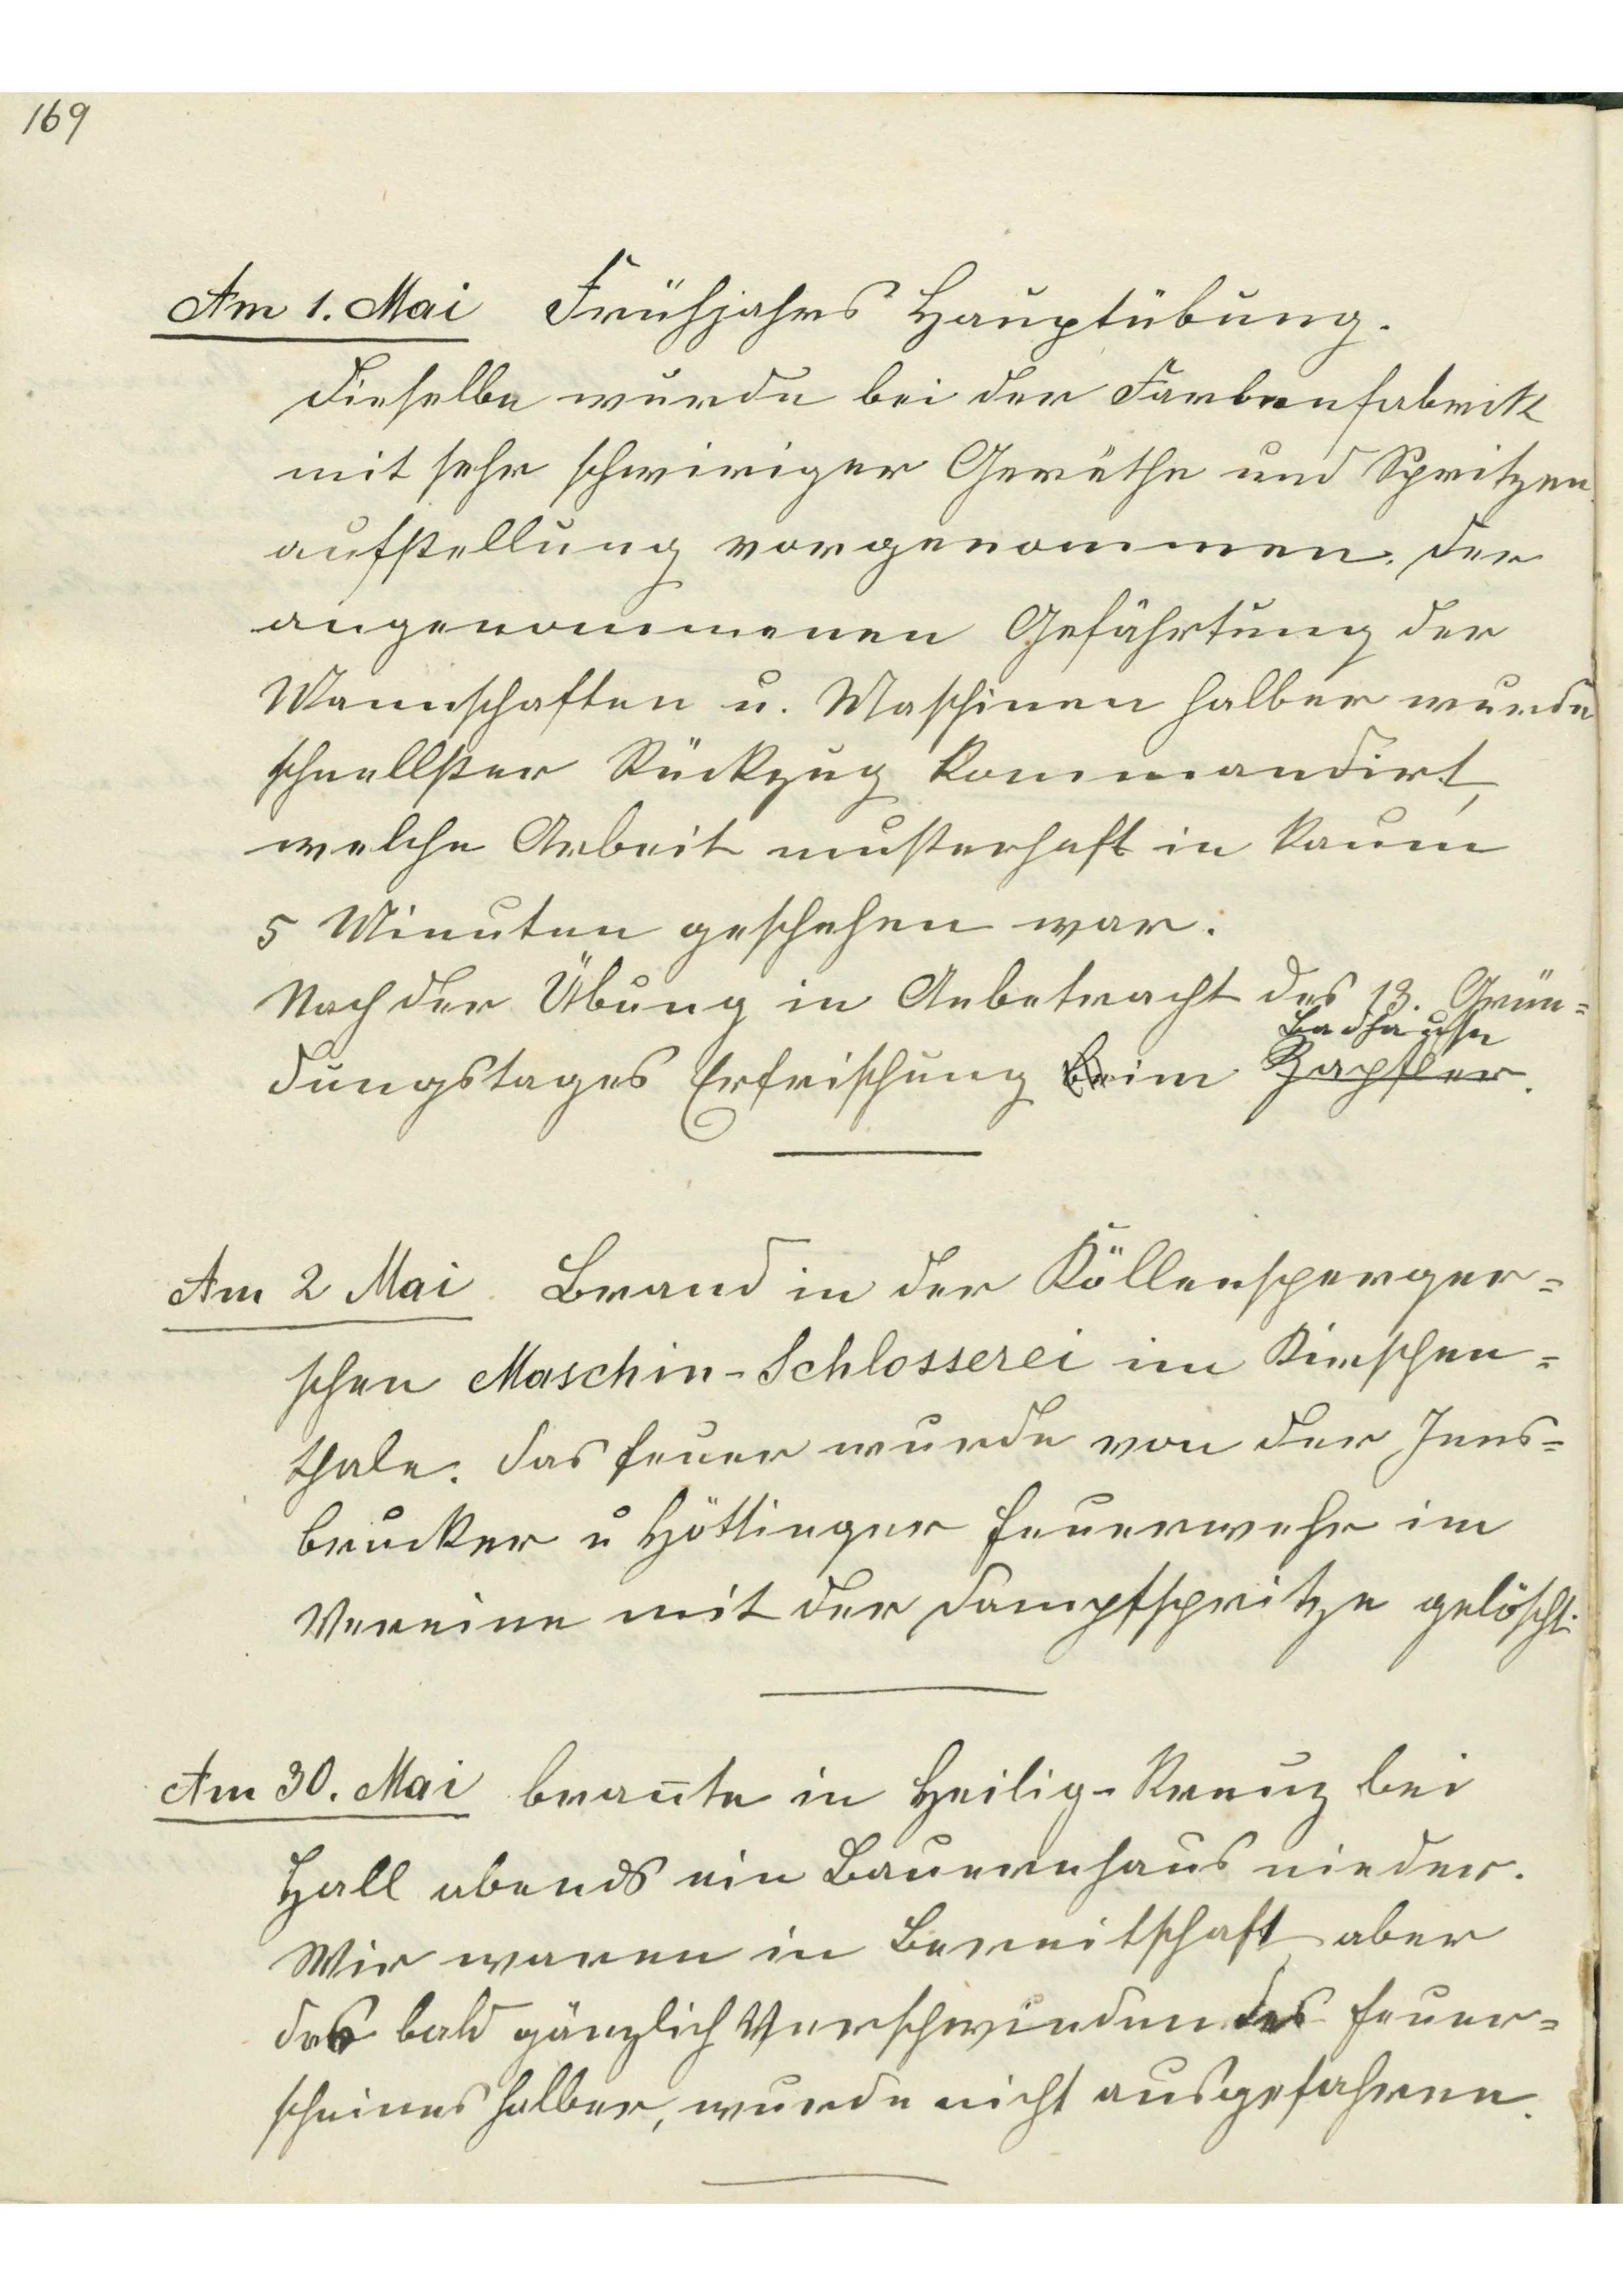 169
Am 1. Mai Frühjahrs Hauptübung.
Dieselbe wurde bei der Farbenfabrik
mit sehr schwiriger Geräthe und Spritzen
aufstellung vorgenommen. Der
angenommenen Gefährtung der
Mannschaften u. Maschinen halber wurde
schnellster Rückzug kommandirt,
welche Arbeit musterhaft in kaum
5 Minuten geschehen war.
Nach der Übung in Anbetracht des 13. Grün=
Badhause
dungstages Erfrischung beim Zapfler.
Am 2 Mai. Brand in der Köllensperger=
schen Maschin-Schlosserei im Kirschen=
thale. Das Feuer wurde von der Inns=
brucker u Höttinger Feuerwehr im
Vereine mit der Dampfspritze gelöscht.
Am 30. Mai brannte in Heilig-Kreuz bei
Hall abends ein Bauernhaus nieder.
Wir waren in Bereitschaft aber
des bald gänzlich Verschwinden des Feuer=
scheines halber, wurde nicht ausgefahren.